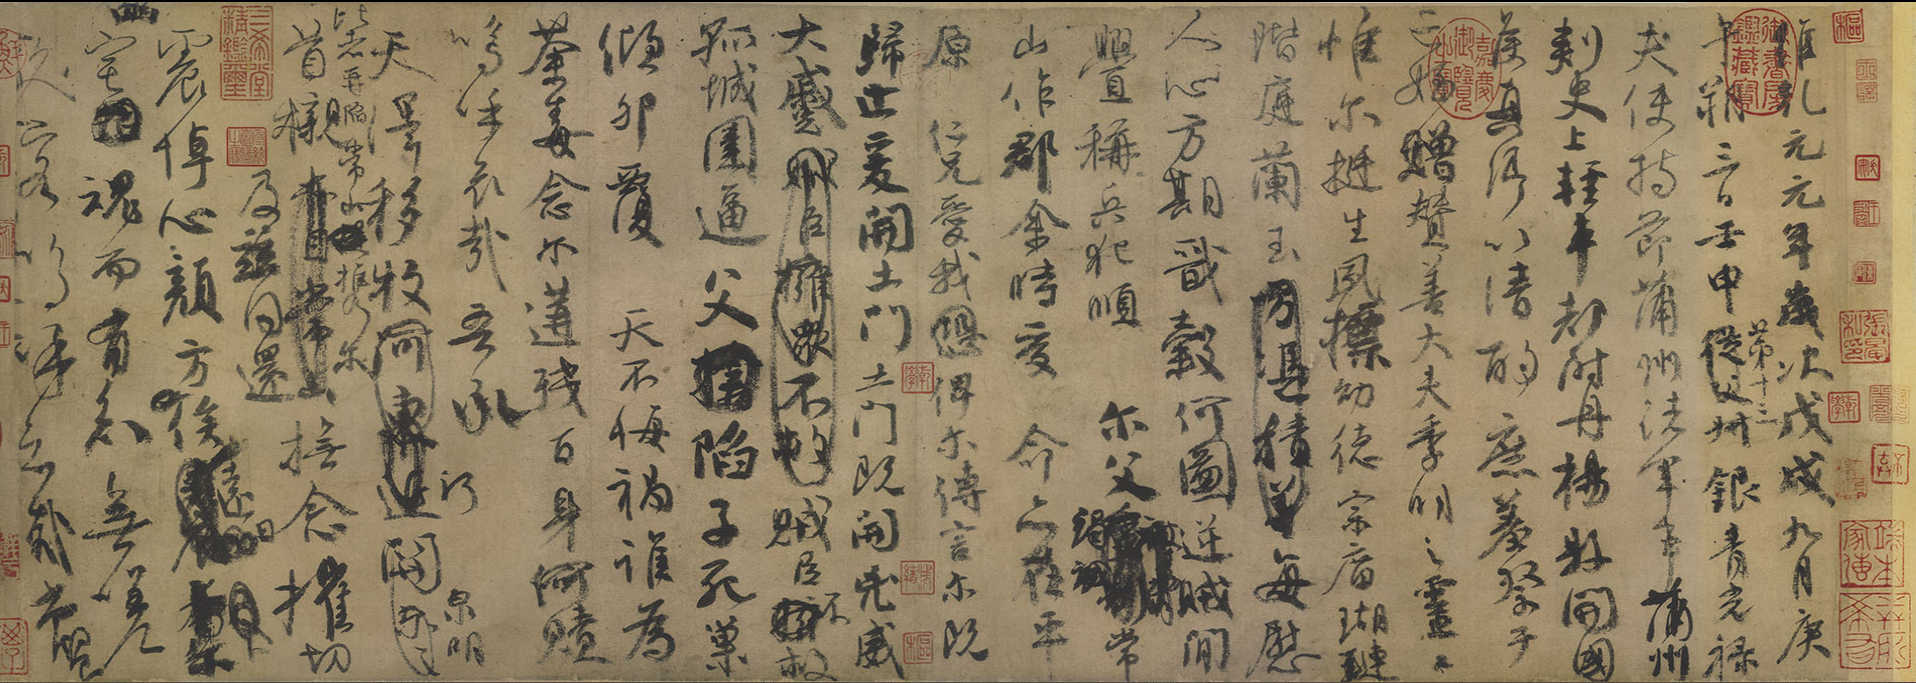 維乾元元年歲次戊戌九月庚
午朔三日壬申第十三從父叔銀青光祿
夫使持節蒲州諸軍事蒲州
刺史上輕車都尉丹楊縣開國
侯真卿以清酌庶羞祭于
亡姪贈贊善大夫季明之靈曰
惟爾挺生夙標幼德宗廟瑚璉
階庭蘭玉方憑積善每慰
人心方期戩穀何圖逆賊閒
釁稱兵犯順爾父竭誠常
山作郡余時受命亦在平
原仁兄愛我恐俾爾傳言爾既
歸止爰開土門土門既開凶威
大蹙賊臣擁眾不救賊臣不救
孤城圍逼父陷子死巢
傾卵覆天不悔禍誰為
荼毒念爾遘殘百身何贖
嗚呼哀哉吾承
天澤移牧河關泉明
比者再陷常山攜爾
首櫬及茲同還
撫念摧切
震悼心顏方俟遠日
幽宅魂而有知無嗟
久客嗚呼哀哉尚饗